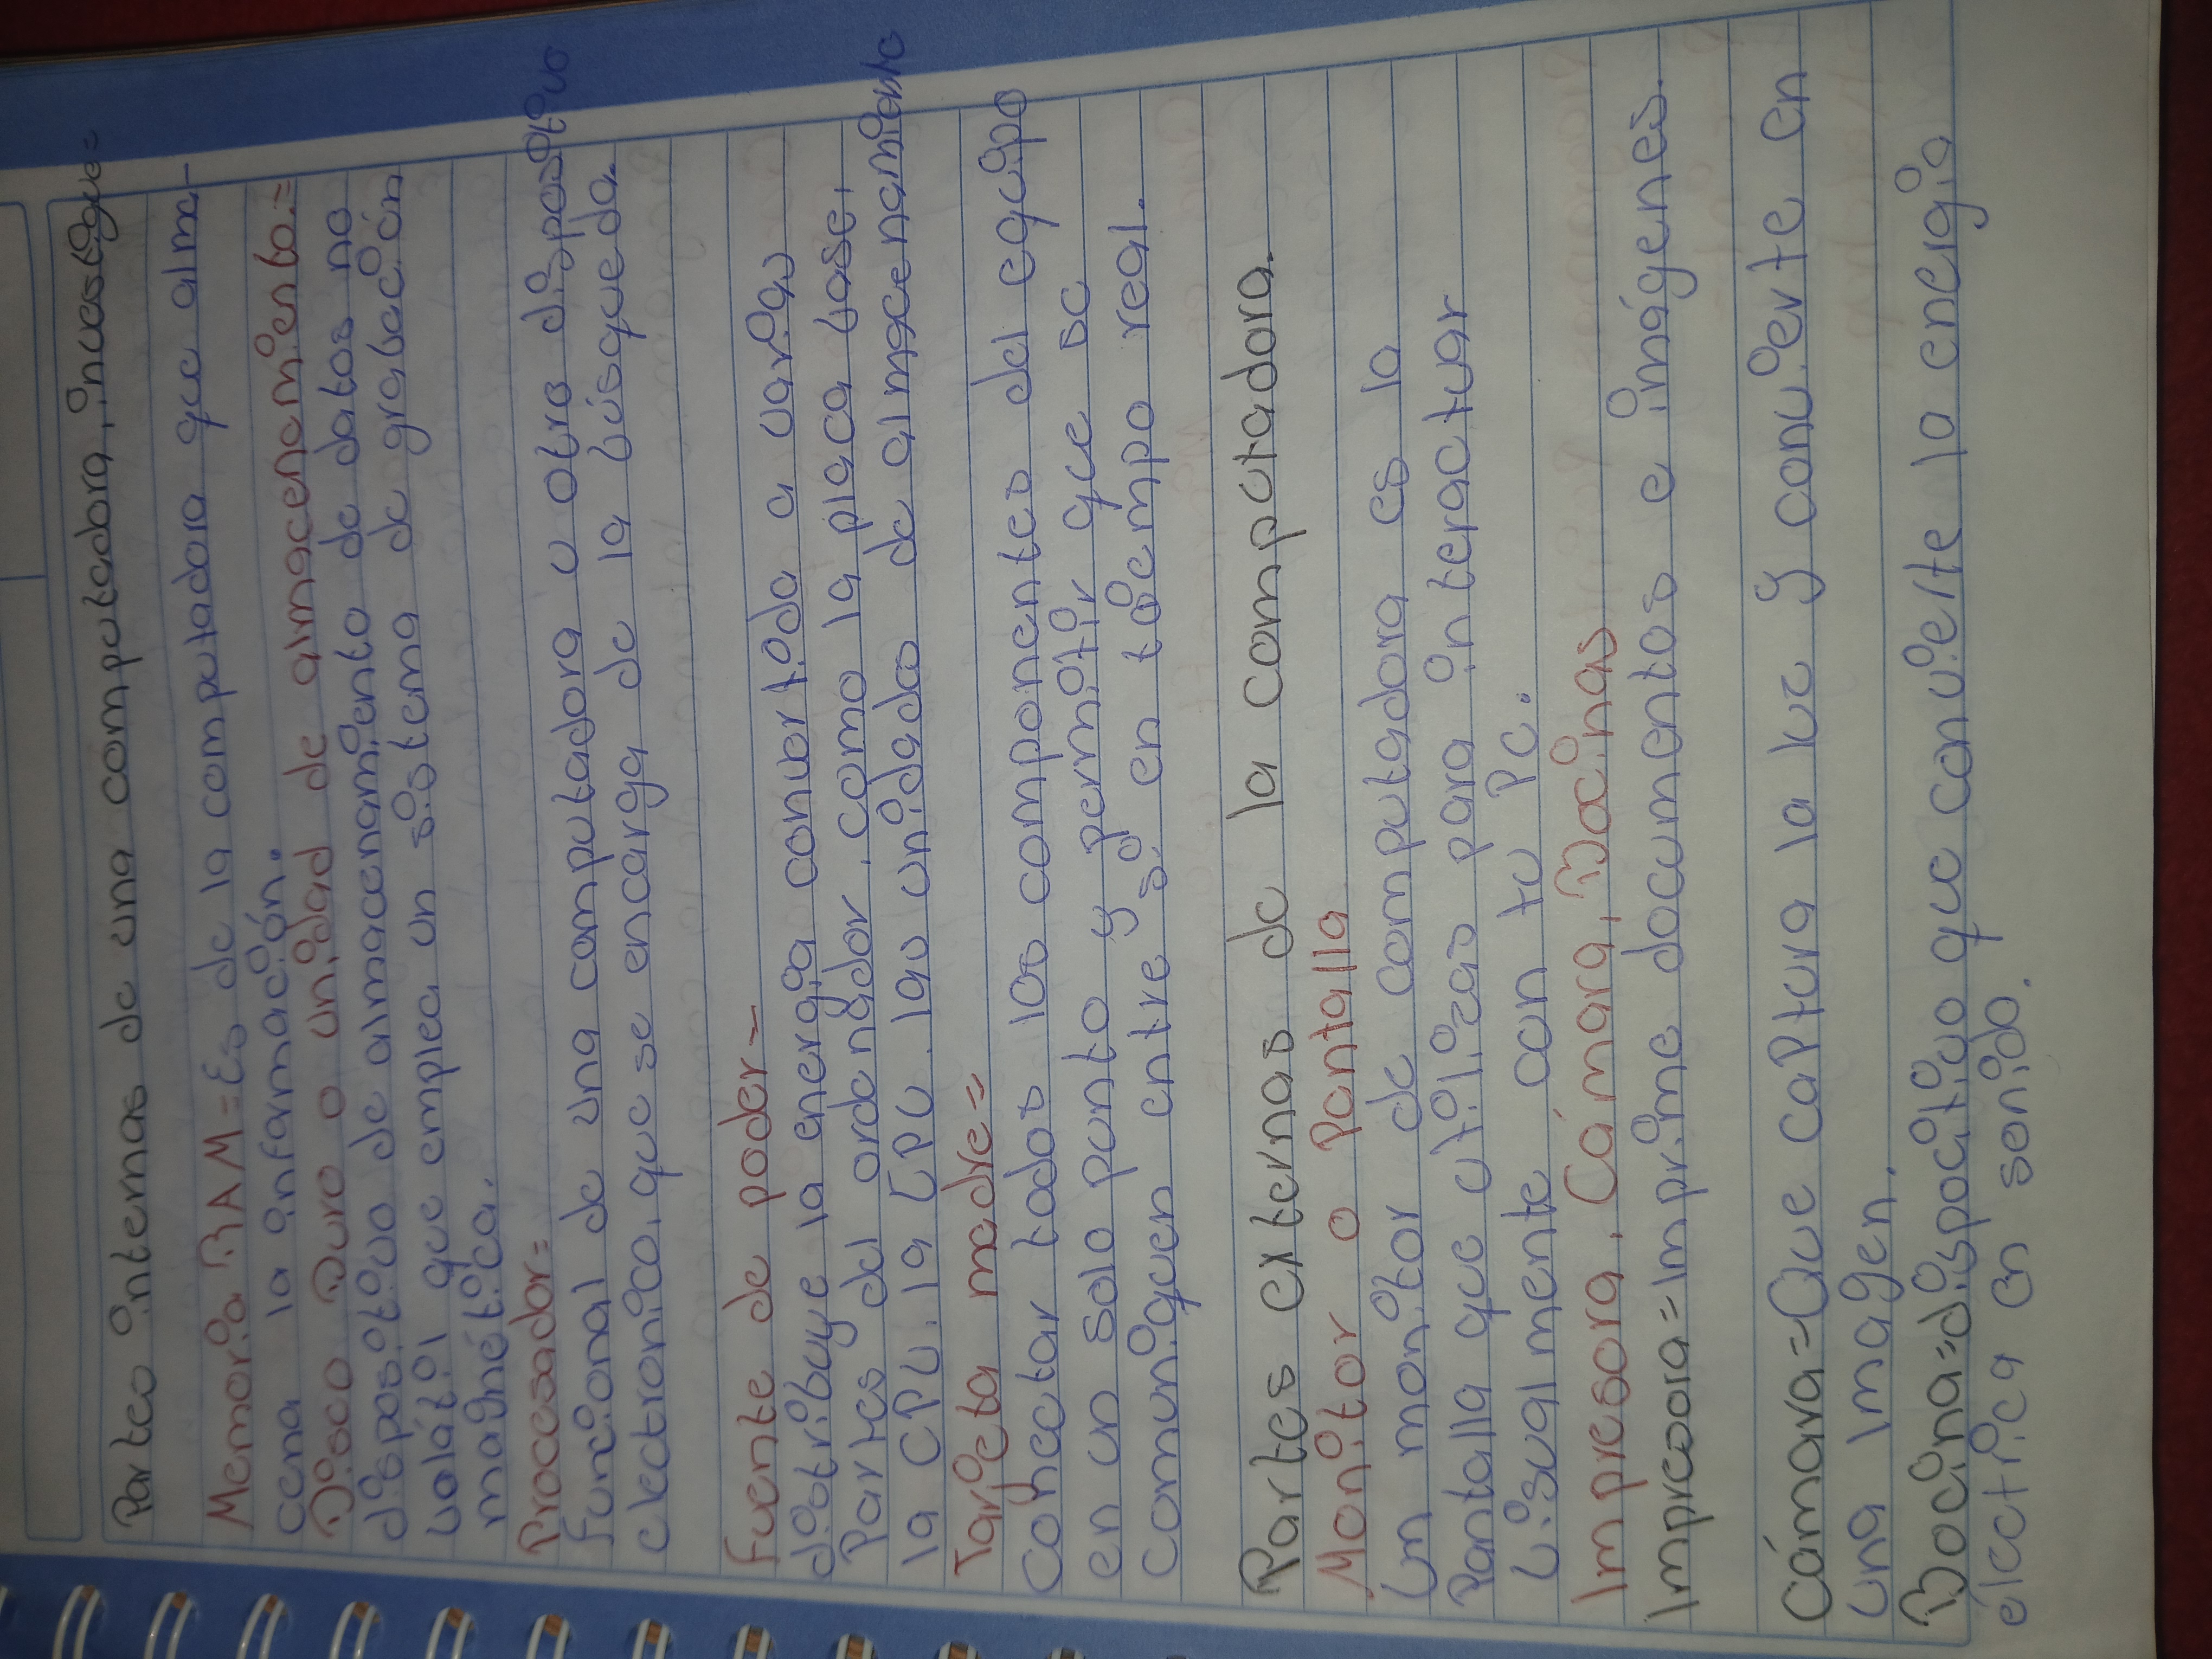 Partes internas de una computadora, investigue=
Memoria RAM= Es de la computadora que alma-
cena la información.
Disco Duro o unidad de almacenamiento.=
dispositivo de almacenamiento de datos no
volátil que emplea un sistema de grabación
magnética.
Procesador=
funcional de una computadora u otro dispositivo
electronico, que se encarga de la búsqueda.
Fuente de poder=
distribuye la energía convertida a varias
Partes del ordenador, como la placa base,
la CPU, la CPU, las unidades de almacenamiento
Tarjeta madre=
Conectar todos los componentes del equipo
en un solo punto y permitir que se
comuniquen entre sí en tiempo real.
Partes externas de la computadora.
Monitor o Pantalla
Un monitor de computadora es la
Pantalla que utilizas para interactuar
visualmente con tu Pc.
Impresora, Cámara, Bocinas
Impresora= Imprime documentos e imágenes.
Cámara= Que captura la luz y convierte en
una imagen.
Bocina= dispocitivo que convierte la energia
eléctrica en sonido.